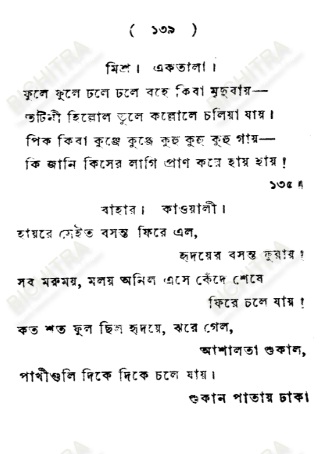 ( ১৩৯ )
মিশ্র। একতালা।
ফুলে ফুলে ঢলে ঢলে বহে কিবা মৃদুবায়—
তটিনী হিল্লোল তুলে কল্লোলে চলিয়া যায়।
পিক কিবা কুঞ্জে কুঞ্জে কুহু কুহু কুহু গায়—
কি জানি কিসের লাগি প্রাণ করে হায় হায়!
১৩৫।
বাহার। কাওয়ালী।
হায়রে সেইত বসন্ত ফিরে এল,
হৃদয়ের বসন্ত ফুরায়!
সব মরুময়, মলয় অনিল এসে কেঁদে শেষে
ফিরে চলে যায়!
কত শত ফুল ছিল হৃদয়ে, ঝরে গেল,
আশালতা শুকাল,
পাখীগুলি দিকে দিকে চলে যায়।
শুকান পাতায় ঢাকা
BICHITRA